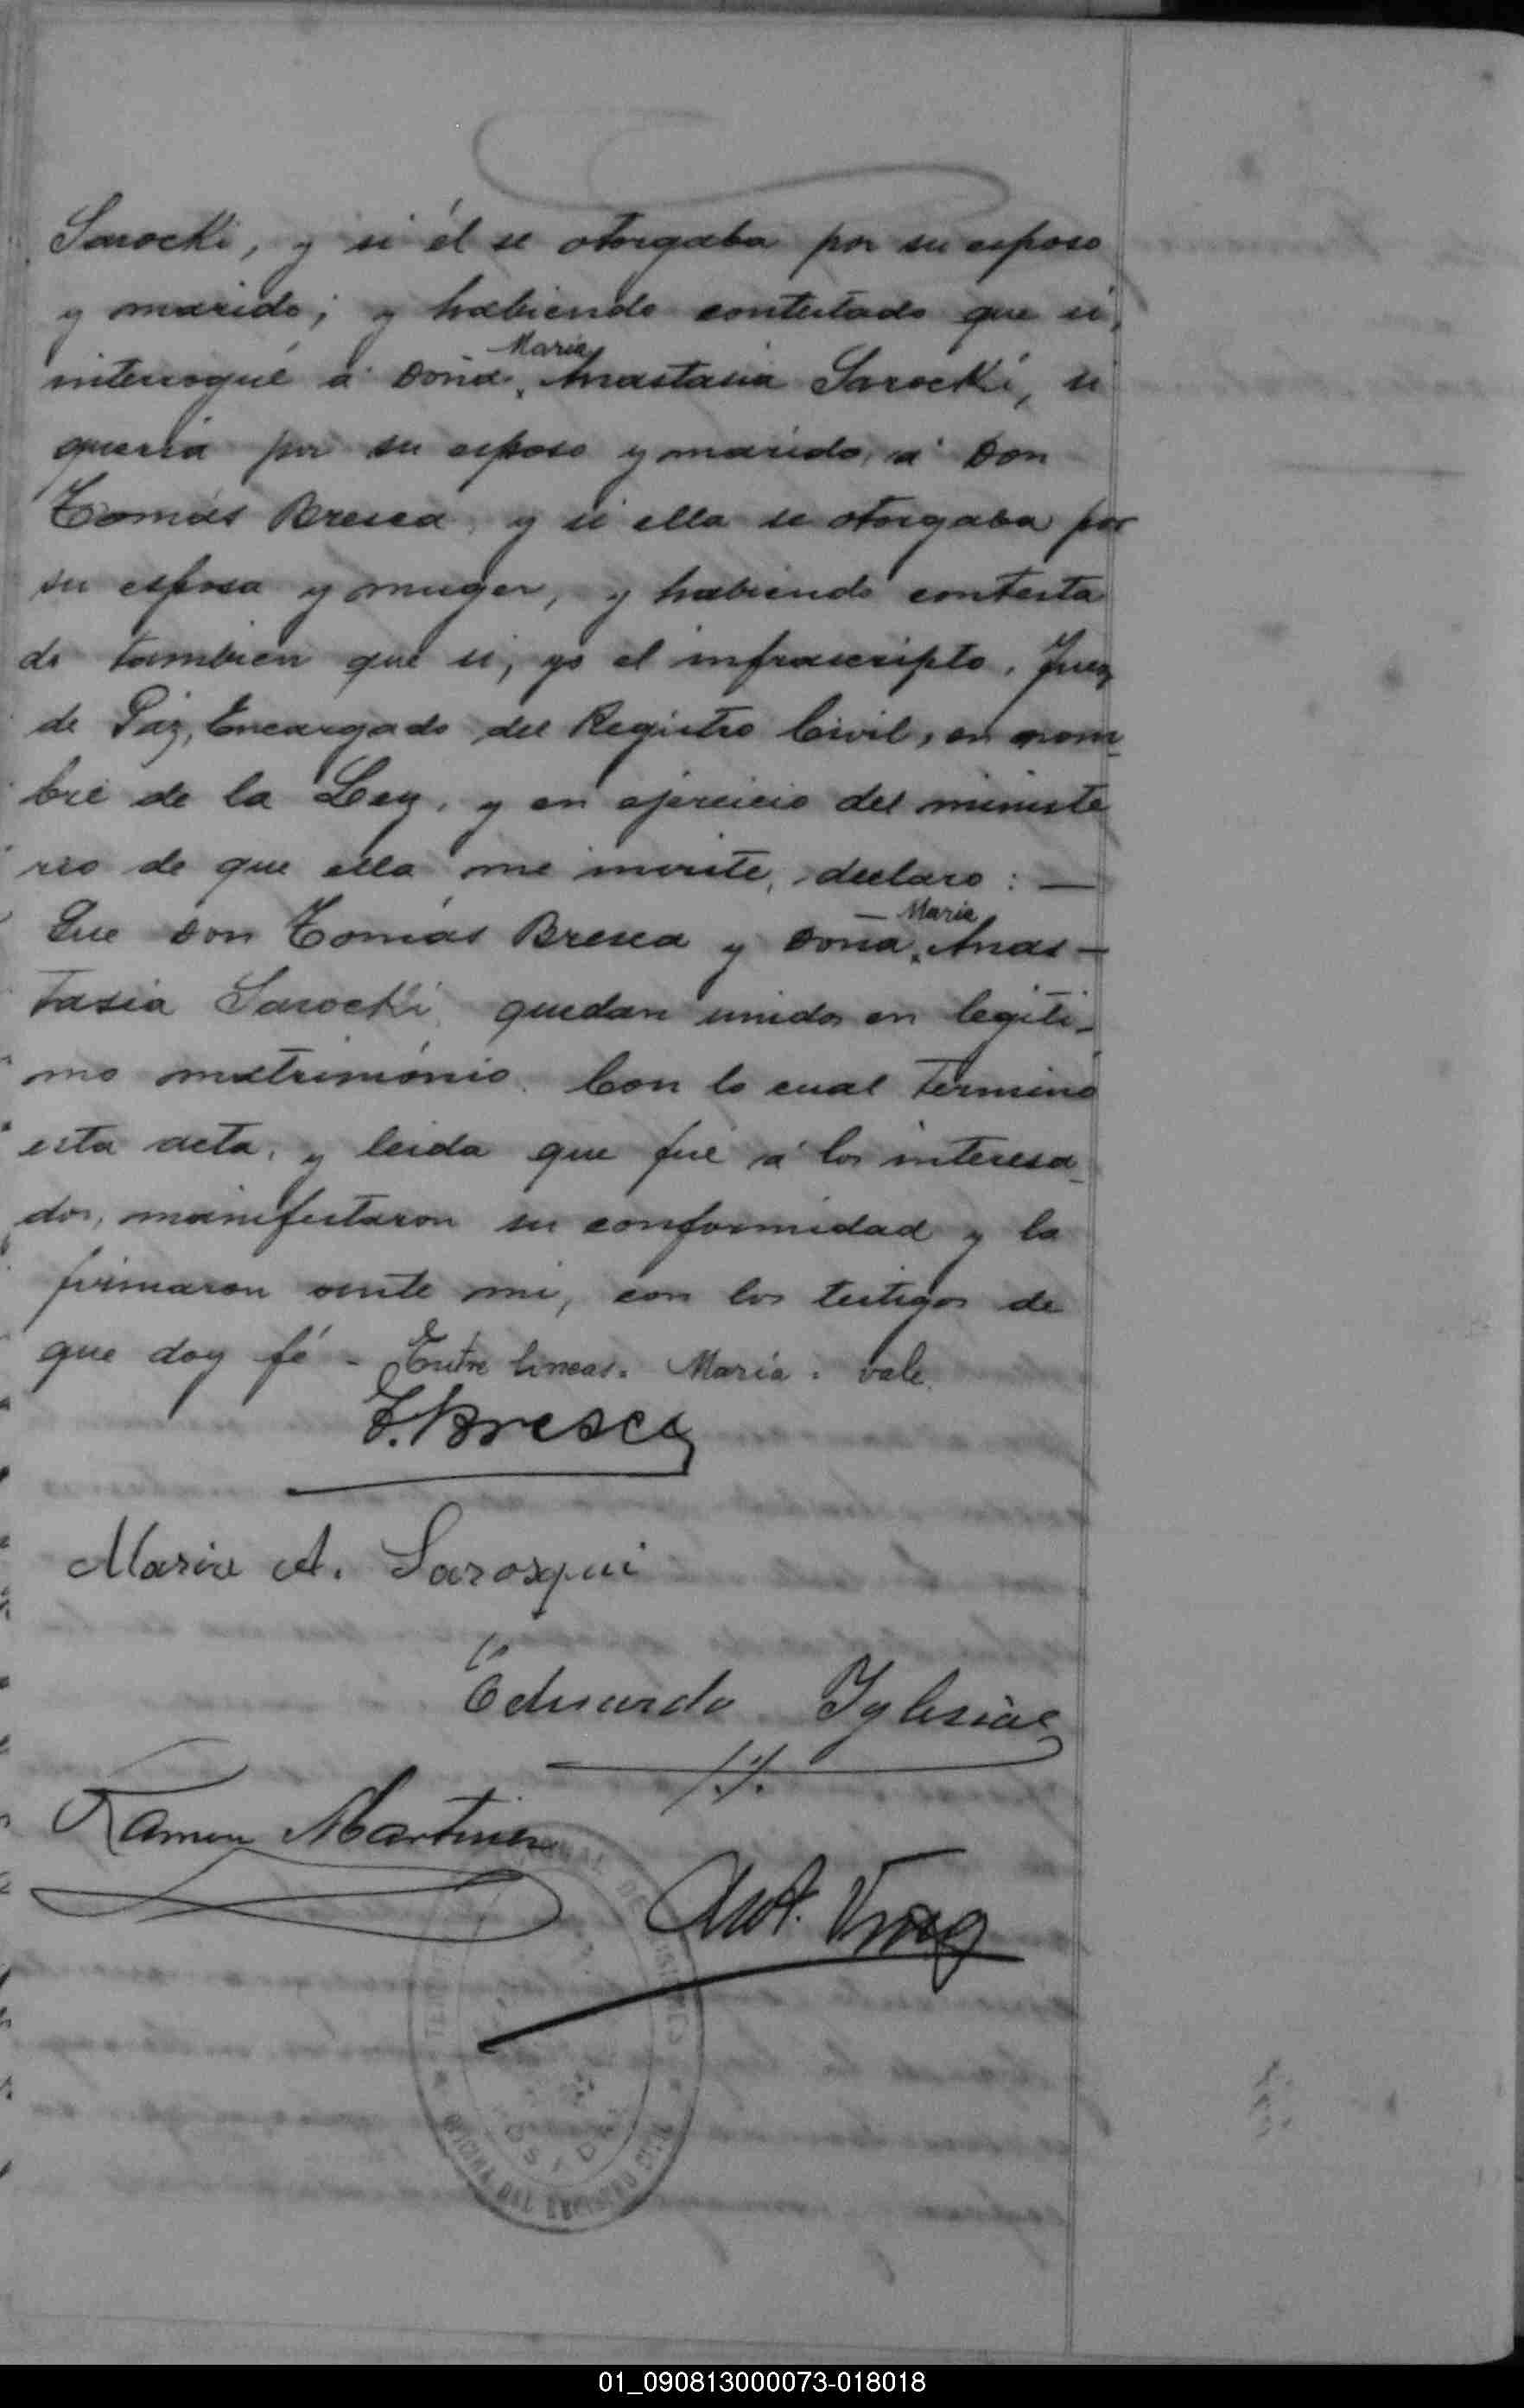 Sarocki, y si él se otorgaba por su esposo
y marido; y habiendo contestado que si,
Maria
interrogué á Doña Anastasia Sarocki, si
queria por su esposo y marido, á Don
Tomás Bresca, y si ella se otorgaba por
su esposa y muger, y habiendo contesta
do tambien que si, yo el infrascripto, Juez
de Paz, Encargado del Registro Civil, en nom-
bre de la Ley, y en ejercicio del ministe
rio de que ella me inviste, declaro: —
— Maria
Que Don Tomás Bresca y Doña Anas-
tasia Sarocki, quedan unidos en legiti-
mo matrimónio. Con lo cual terminó
esta acta, y leida que fué á los interesa-
dos, manifestaron su conformidad y la
firmaron ante mi, con los testigos de
que doy fé - Entre lineas. Maria. vale.
T. Bresca
Maria A. Sarosqui
Eduardo Iglesias
Ramon Martinez
OFICINA DEL REGISTRO CIVIL
01_090813000073-018018